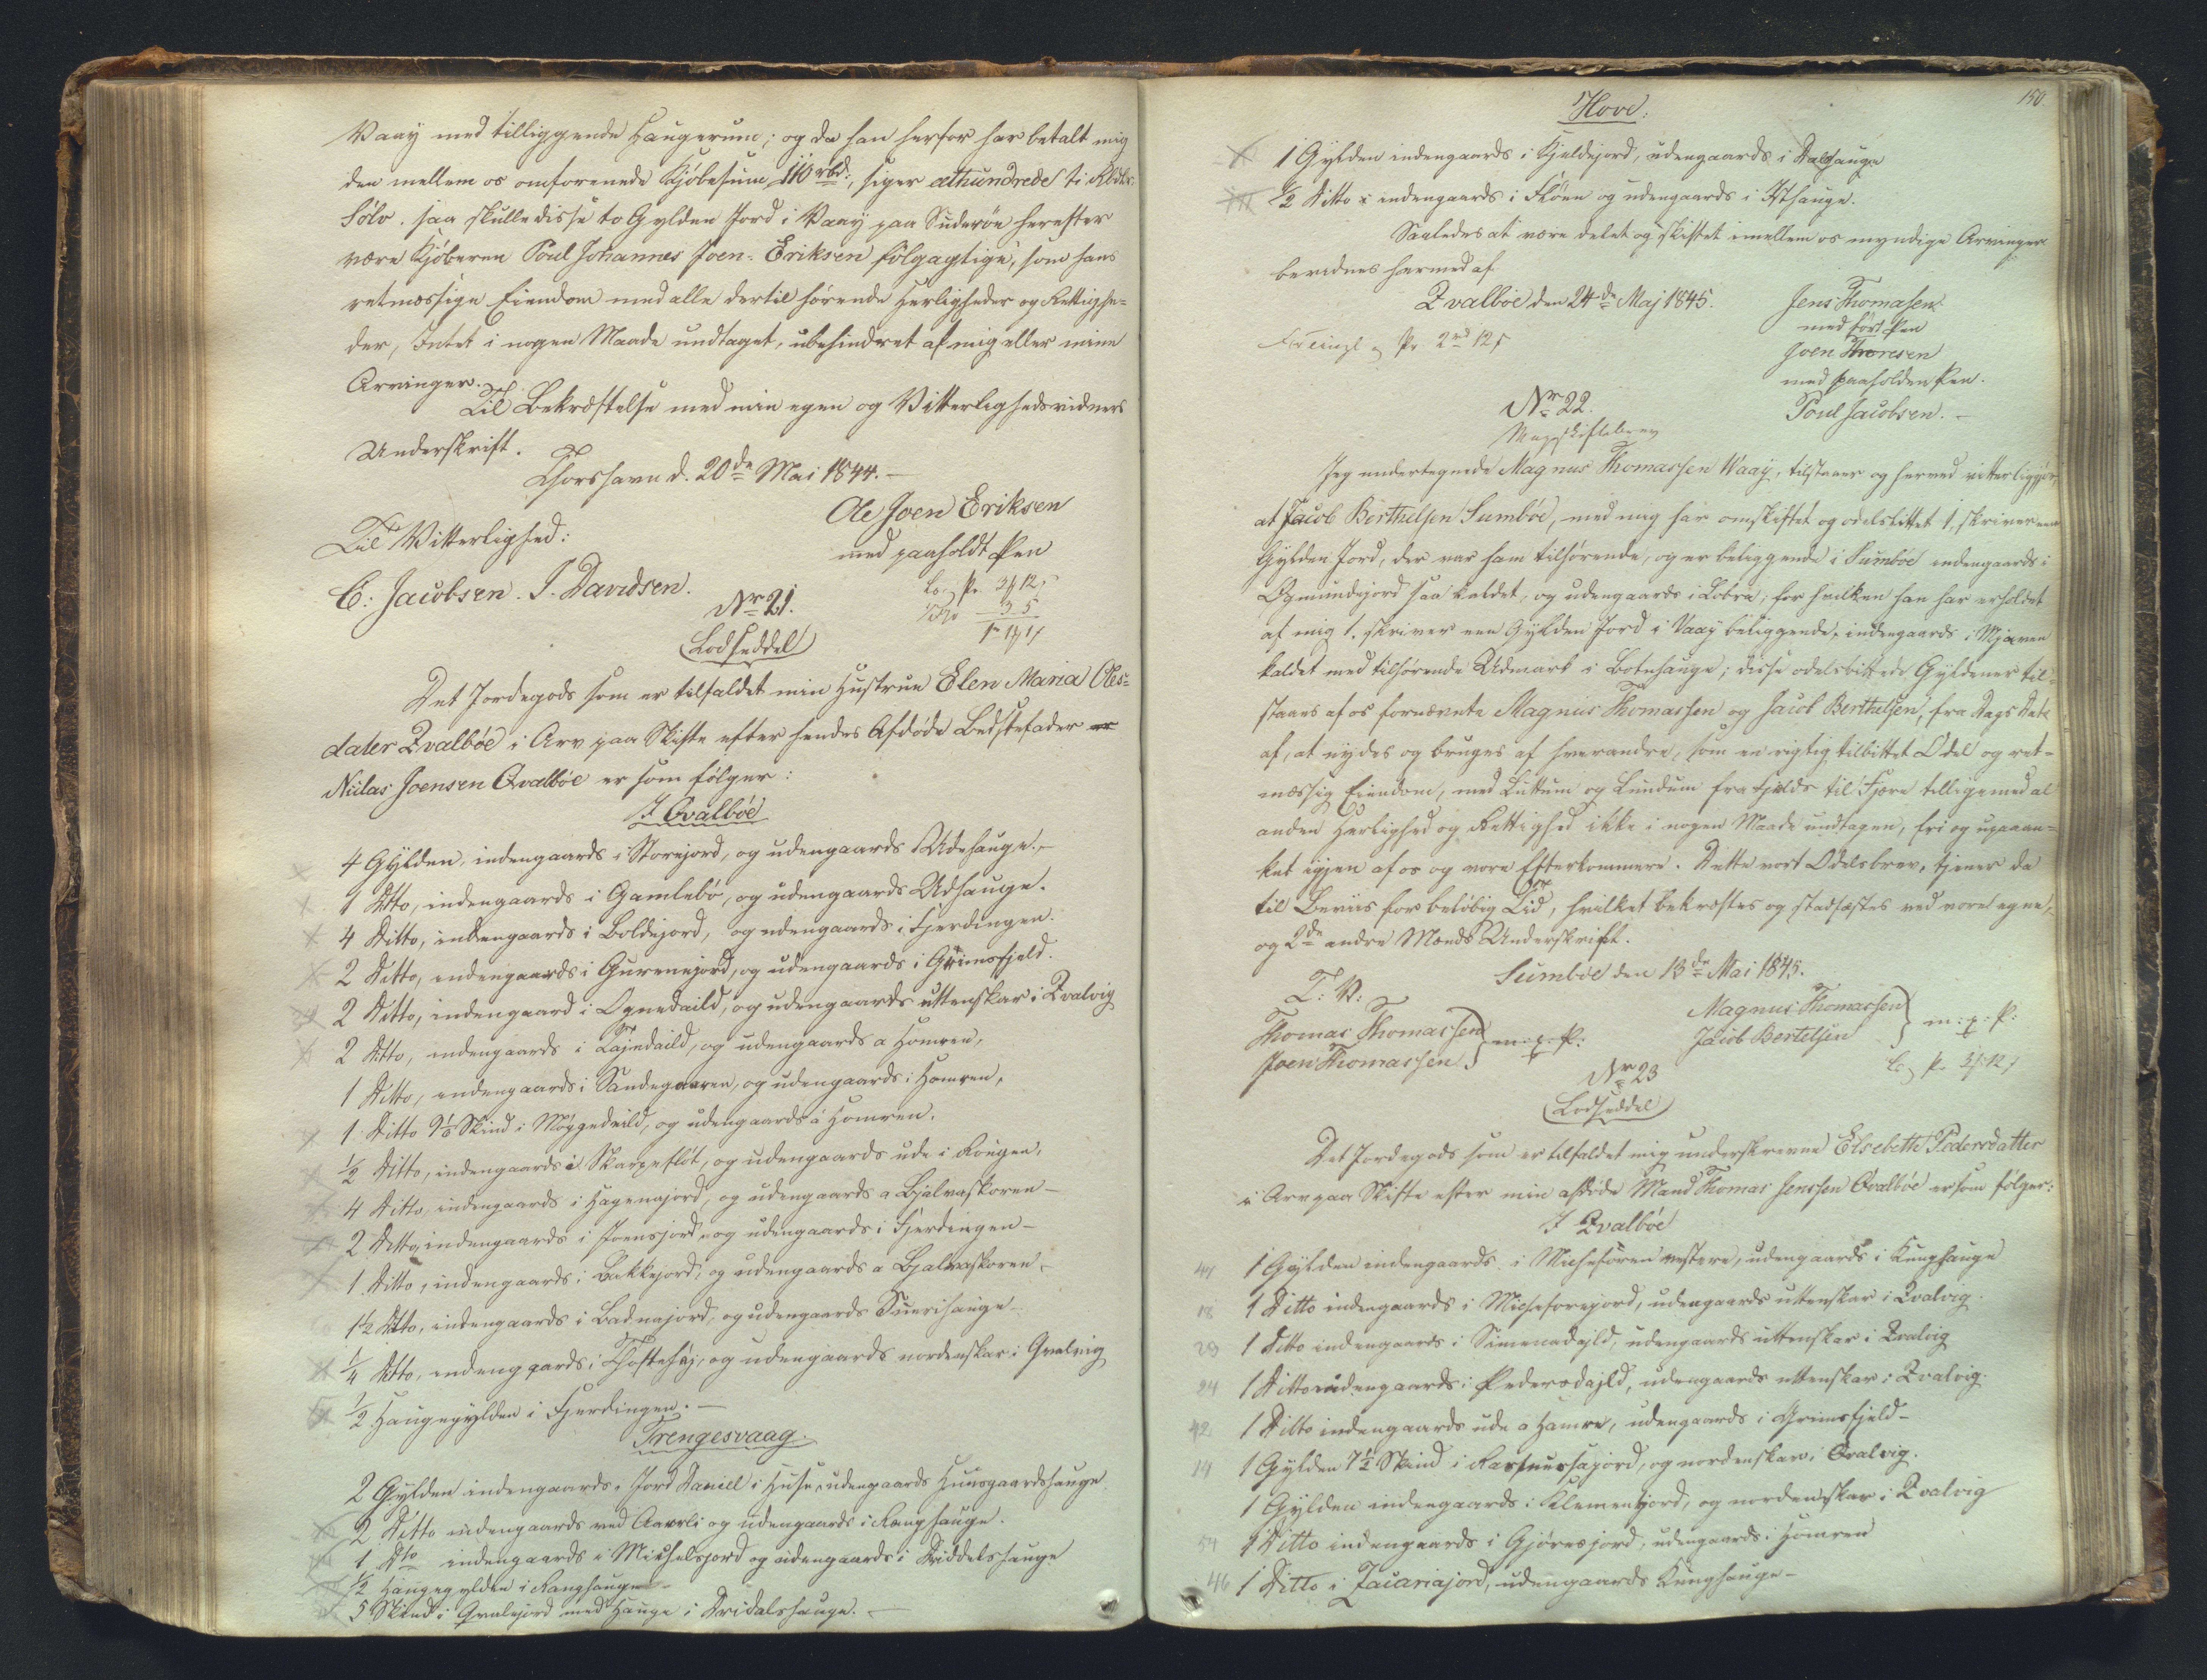 Vaay med tilliggende Haugerum; og da han herfor har betalt mig
den mellem os omforenede Kjöbesum 110 rbd:, siger ethundrede ti Rbdlr:
Sölv. saa skulle disse to Gylden Jord i Vaay paa Suderöe herefter
være Kjöberen Poul Johannes Joen- Eriksen fölgagtige, som hans
retmæssige Eiendom med alle dertil hørende Herligheder og Rettighe-
der, Intet i nogen Maade undtaget, ubehindret af mig eller mine
Arvinger.
Til Bekræftelse med min egen og Vitterlighedsvidners
Underskrift.
Thorshavn d. 20de Mai 1844.-
Ole Joen Eriksen
med paaholdt Pen
Til Vitterlighed:
C: Jacobsen. J. Davidsen.
Nr 21.
Lodseddel
Det Jordegods som er tilfaldet min Hustrue Elen Maria Oles-
dater Qvalböe i Arv paa Skifte efter hendes Afdöde Bedstefader
Niclas Joensen Qvalböe er som fölger:
I Qvalböe
4 Gylden, indengaards i Storejord, og udengaards Udehauge.-
1 Dtto, indengaards i Gamlebö, og udengaards Udhauge.
4 Ditto, indengaards i Boldejord, og udengaards i Fjerdingen.
2 Ditto, indengaards i Gurenejord, og udengaards i Grimsfjeld.
2 Ditto, indengaard i Ognedaild, og udengaards uttenskar i Qvalvig
2 Dtto, indengaards i Lajnedaild, og udengaards a Homren,
1 Ditto, indengaards i Sandegaaren, og udengaards i Homren,
1 Ditto 9 1/8 Skind i Möggedeild, og udengaards a Homren.
1/2 Ditto, indengaards i Skarpeflöt, og udengaards ude i Rougen,
4 Ditto indengaards i Hagenajord, og udengaards a Bjalvaskoren-
2 Ditto, indengaards i Joensjord, og udengaards i Fjerdingen-
1 Ditto, indengaards i Bakkejord, og udengaards a Bjalvaskoren.
1 1/2 Dtto, indengaards i Badnajord, og udengaards Suurihauge-
1/4 Dtto, indengaards i Thoftehöj, og udengaards nordenskar i Qvalvig
1/2 Haugegylden i Fjerdingen.-
Trengesvaag.
2 Gylden indengaards i Jord Daniell i Huse, udengaards Huusgaardshauge
2 Ditto indengaards ved Aaarli og udengaards i Ranghauge.
1 Dto indengaards i Mikkelsjord og udengaards i Driddelshauge
1/2 Haugegylden i Ranghauge-
5 Skind i Qvalejord med Hauge i Dridalshauge.-
150
Hove.
1 Gylden indengaards i Kjeldejord, udengaards i Dalshauge
1/2 Ditto indengaards i Flöen og udengaards i Isthauge.
Saaledes at være delet og skiftet imellem os myndige Arvinger
bevidnes hermed af.
Qvalböe den 24de Maj 1845.
Jens Thomasen
med ført Pen
Joen Thoresen
med paaholden Pen.
Poul Jacobsen.-
Nr 22.
Mageskiftebrev
Jeg undertegnede Magnus Thomassen Waay, tilstaaer og herved vitterliggjör
at Jacob Berthelsen Sumböe, med mig har omskiftet og odelsbittet 1, skriver een
Gylden Jord, der var ham tilhørende, og er beliggende i Sumböe indengaards i
Ogmundejord saa kaldet, og udengaards i Lobra, for hvilken han har erholdet
af mig 1. skriver een Gylden Jord i Vaay beliggende, indengaards i Mjaven
kaldet med tilhørende Udmark i Botnhauge; disse odelsbittede Gyldener til-
staaes af os fornævnte Magnus Thomassen og Jacob Berthelsen, fra Dags Dato
af, at nydes og bruges af hverandre, som en rigtig tilbittet Odel og ret-
mæssig Eiendom, med Luttum og Lundum fra Fjelds til Fjære tilligemed al
anden Herlighed og Rettighed ikke i nogen Maade undtagen, fri og upaaan-
ket igjen af os og vore Efterkommere. Dette vort Odelsbrev, tjener da
til Beviis for belöbig Tid, hvilket bekræftes og stadfæstes ved vore egne,
og 2de andre Mænds Underskrift.
Sumböe den 13de Mai 1845.
T: V:
Thomas Thomassen
Joen Thomassen
m: p: P:
Magnus Thomassen
Jacob Bertelsen
m: p: P:
Nr 23
Lodseddel
Det Jordegods som er tilfaldet mig underskrevne Elsebette Pedersdatter
i Arv paa Skifte efter min afdöde Mand Thomas Jenssen Qvalböe er som fölger:
I Qvalböe
41 1 Gylden indengaards i Micheforen vestere, udengaards i Kunghauge
18 1 Ditto indengaards i Micheforejord, udengaards uttenskar i Qvalvig.
23 1 Ditto indengaards i Simenadajld, udengaards uttenskar i Qvalvig
24 1 Ditto indengaards i Pedersdajld, udengaards uttenskar i Qvalvig.
42 1 Ditto indengaards ude a Hamre, udengaards i Grimsfjeld-
14 1 Gylden 7 1/2 Skind i Rasmussajord, og nordenskar i Qvalvig.
1 Gylden indengaards i Klemensjord, og nordenskar i Qvalvig
54 1 Ditto indengaards i Gjöresjord, udengaards i Homren
46 1 Ditto i Zacariajord, udengaards Kunghauge-